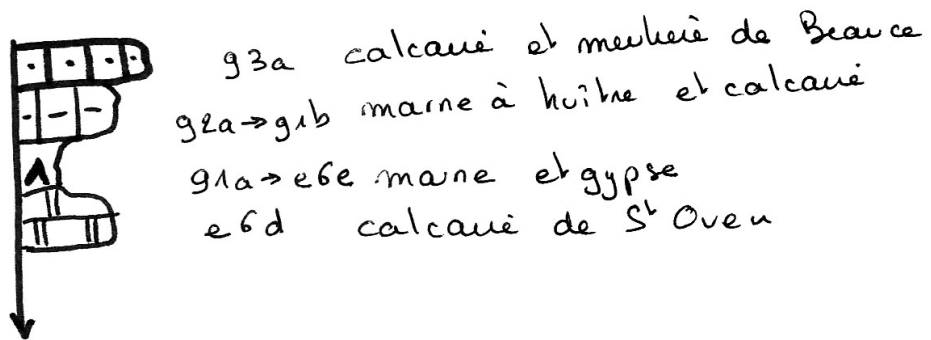 g3a calcaire et meulière de Beauce
g2a→g1b marne à huître et calcaire
g1a→e6e marne et gypse
e6d calcaire de St Ouen